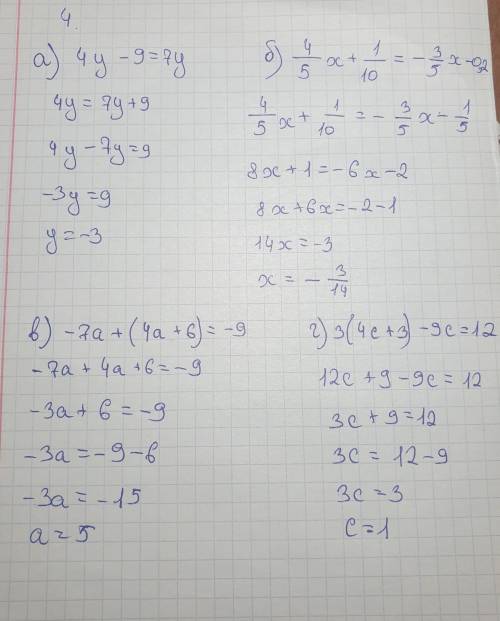 4.
а) 4y - 9 = 7y
4y = 7y + 9
4y - 7y = 9
-3y = 9
y = -3
б) 4/5 x + 1/10 = - 3/5 x - 0,2
4/5 x + 1/10 = - 3/5 x - 1/5
8x + 1 = -6x - 2
8x + 6x = -2 - 1
14x = -3
x = - 3/14
в) -7a + (4a + 6) = -9
-7a + 4a + 6 = -9
-3a + 6 = -9
-3a = -9 - 6
-3a = -15
a = 5
г) 3(4c + 3) - 9c = 12
12c + 9 - 9c = 12
3c + 9 = 12
3c = 12 - 9
3c = 3
c = 1